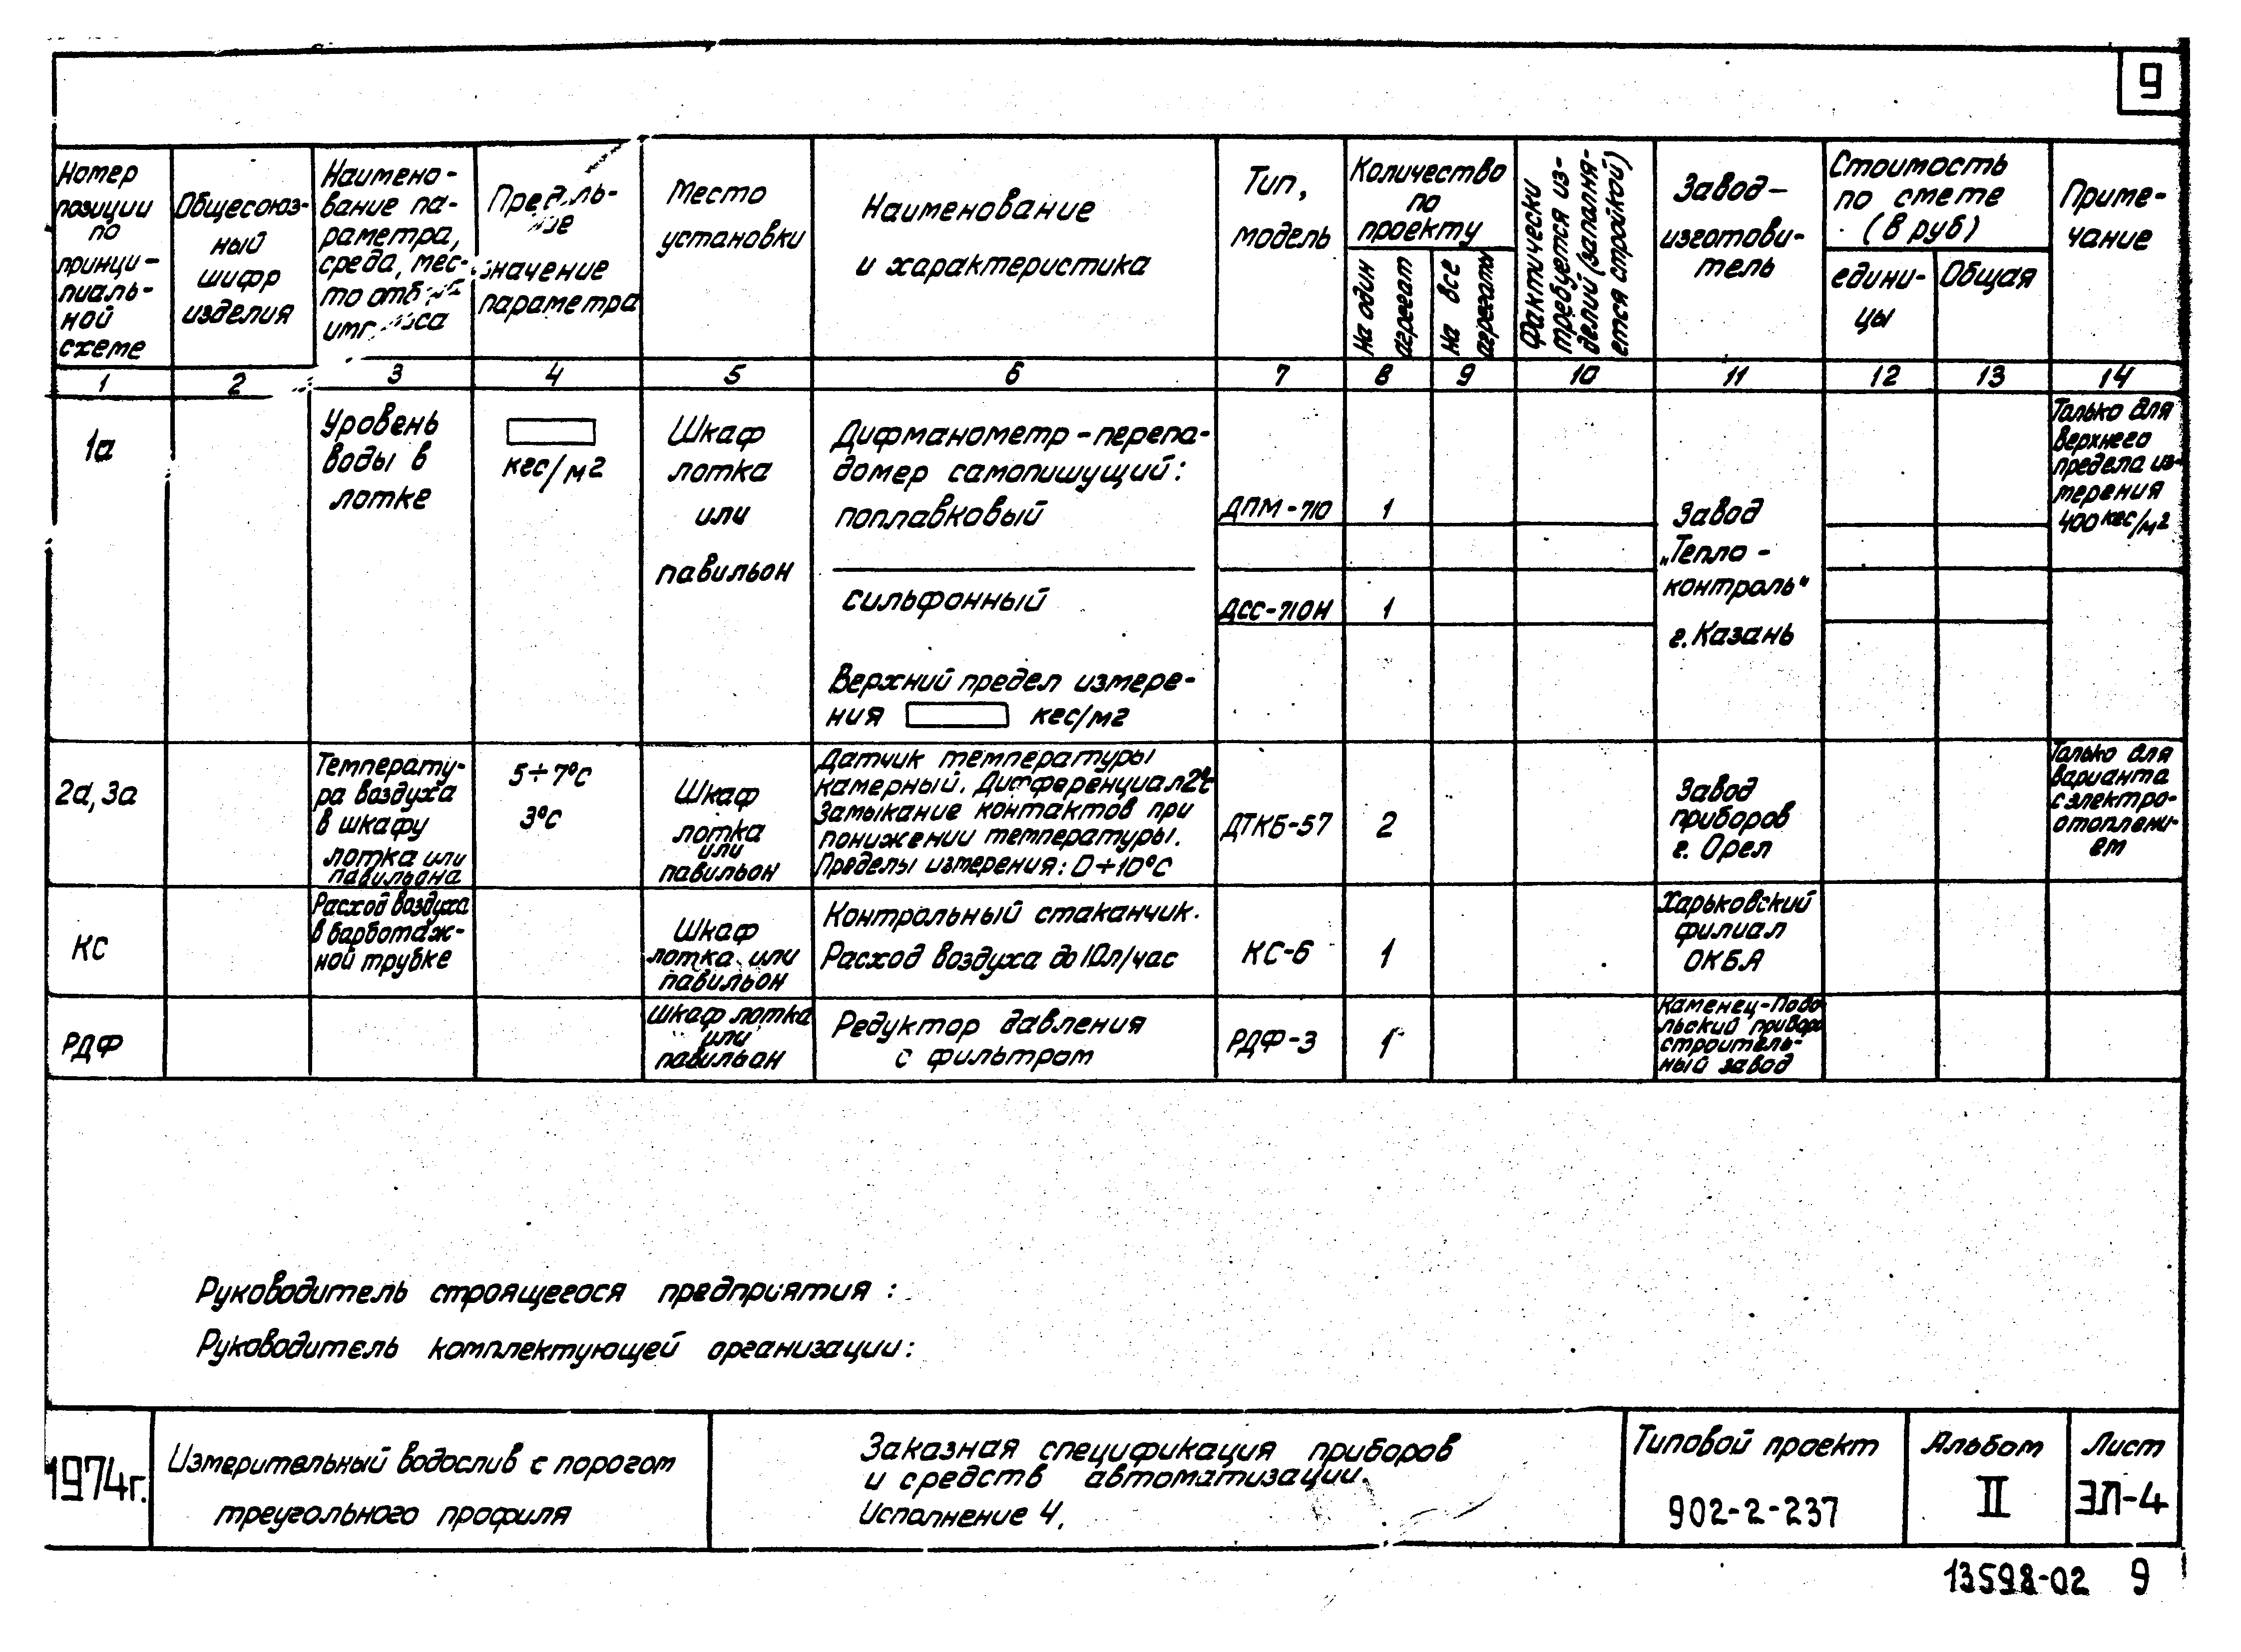 9
Номер
позиции
по
принци-
пиаль-
ной
схеме
Общесоюз-
ный
шифр
изделия
Наимено-
вание па-
раметра,
среда, мес-
то
Предель-
ное
значение
параметра
Место
установки
Наименование
и характеристика
Тип,
модель
Количество
по
проекту
На один
агрегат
На все
агрегаты
Фактически
требуется из-
делий (заполня-
ется стройкой)
Завод-
изготови-
тель
Стоимость
по смете
(в руб)
едини-
цы
Общая
Приме-
чание
1 2 3 4 5 6 7 8 9 10 11 12 13 14
1а
Уровень
воды в
лотке
кгс/м2
Шкаф
лотка
или
павильон
Дифманометр-перепа-
домер самопишущий:
поплавковый
сильфонный
Верхний предел измере-
ния кгс/м2
ДПМ-710
ДСС-710Н
1
1
Завод
„Тепло-
контроль"
г. Казань
Только для
верхнего
предела из-
мерения
400 кгс/м2
2а, 3а
Температу-
ра воздуха
в шкафу
лотка или
павильона
5÷7°С
3°С
Шкаф
лотка
или
павильон
Датчик температуры
камерный. Дифференциал 2°С
Замыкание контактов при
понижении температуры.
Пределы измерения: 0÷10°С
ДТКБ-57
2
Завод
приборов
г. Орел
Только для
варианта
с электро-
отоплени-
ем
КС
Расход воздуха
в барботаж-
ной трубке
Шкаф
лотка или
павильон
Контрольный стаканчик.
Расход воздуха до 10л/час
КС-6
1
Харьковский
филиал
ОКБА
РДФ
Шкаф лотка
или
павильон
Редуктор давления
с фильтром
РДФ-3
1
Каменец-Подо
льский приборо
строитель-
ный завод
Руководитель строящегося предприятия:
Руководитель комплектующей организации:
1974г.
Измерительный водослив с порогом
треугольного профиля
Заказная спецификация приборов
и средств автоматизации.
Исполнение 4.
Типовой проект
902-2-237
Альбом
II
Лист
ЭЛ-4
13598-02 9